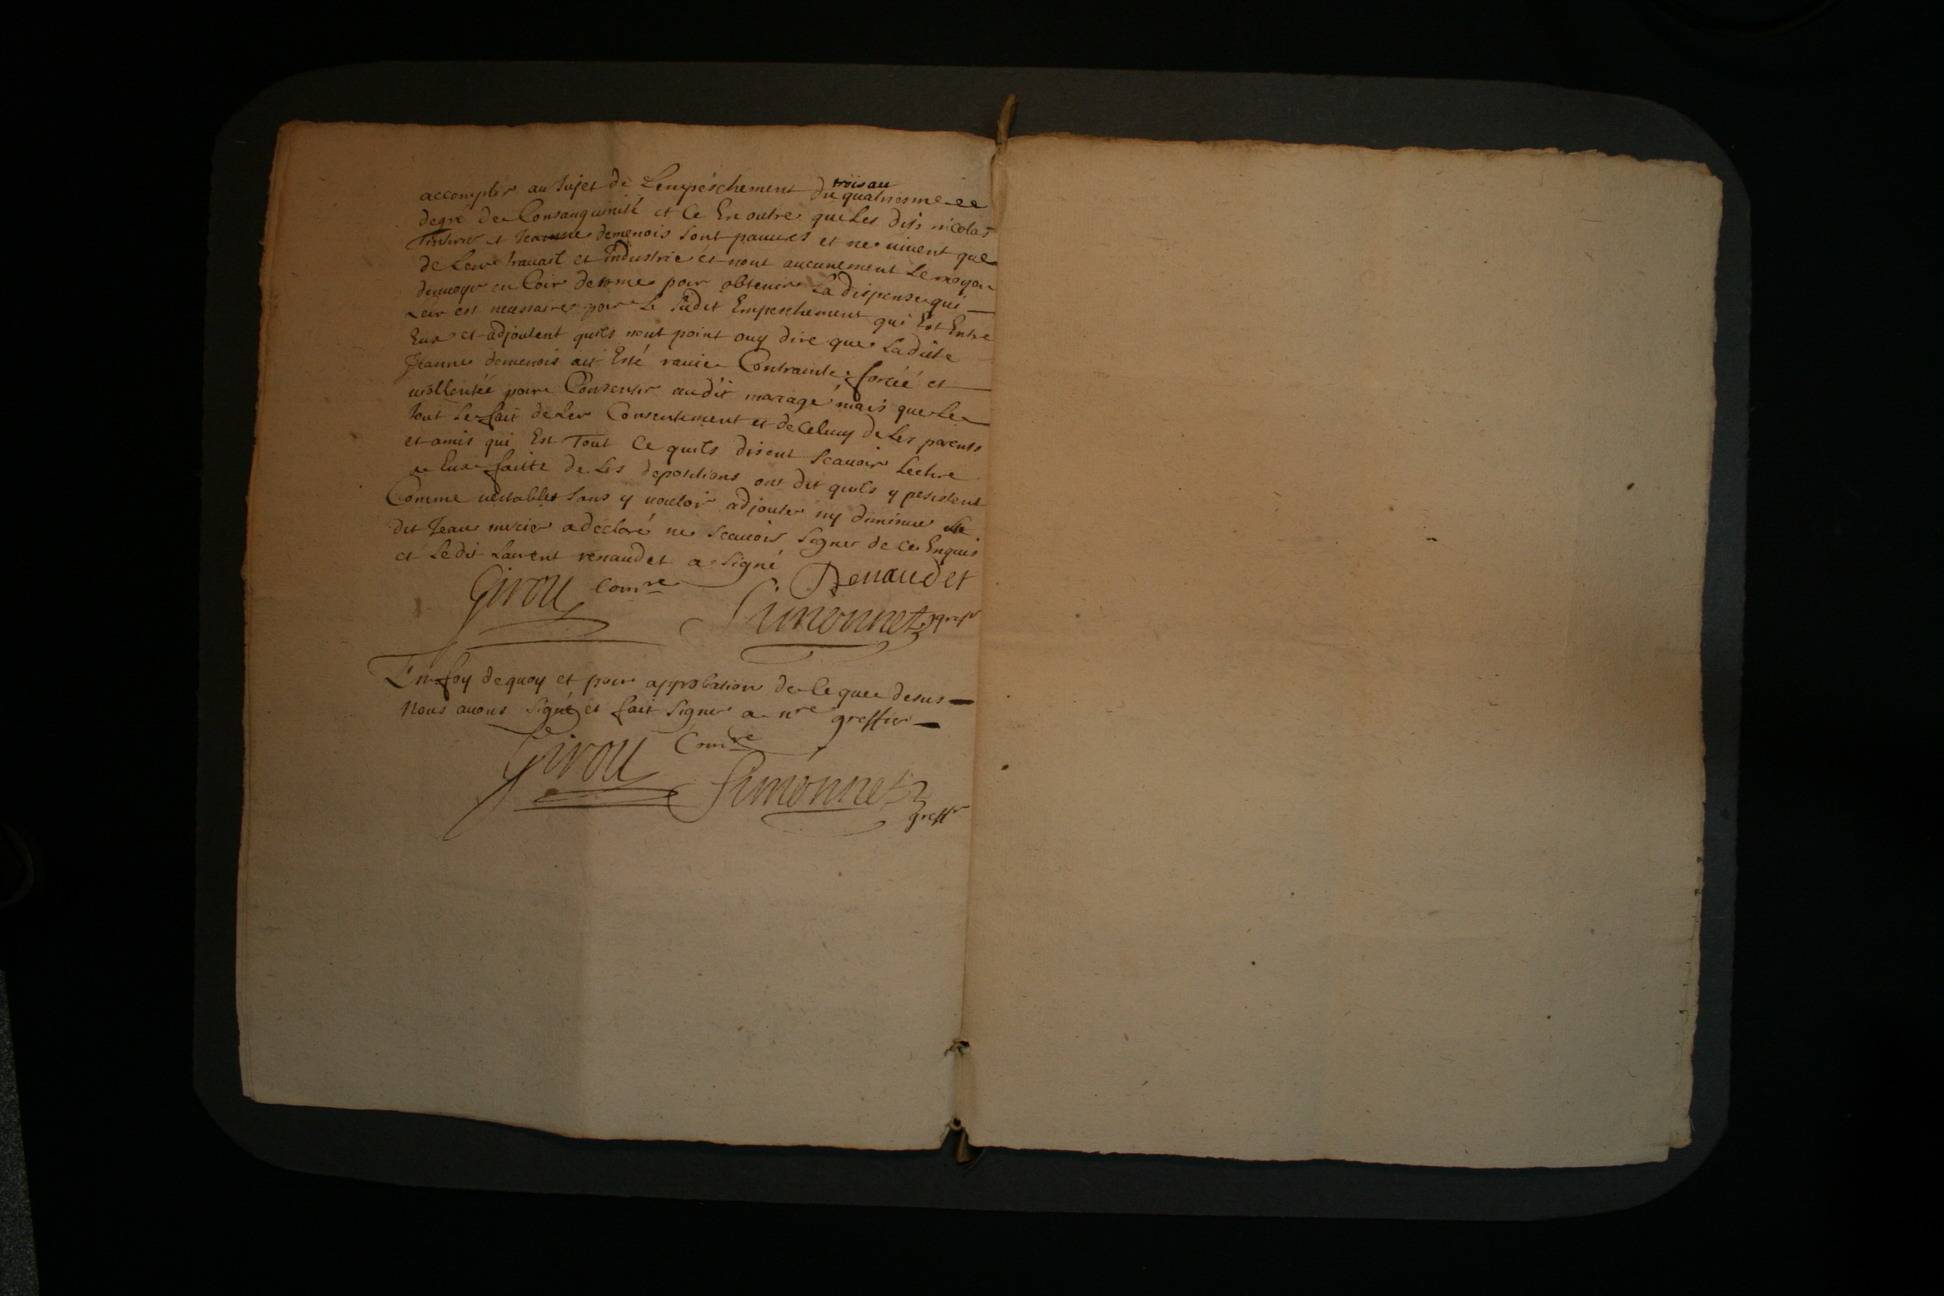 accomplir au sujet de Lempeschement du trois au quatriesme
degré de Consanguinité et Ce En outre que Les dits nicolas
et Jeanne demenois sont pauures et ne uiuent que
de Leur trauail et Industrie et nont aucunement Le moyen
denuoyer en Cour de rome pour obtenir La dispense qui
Leur est necessaire pour Le sudit Empeschement qui Est Entre
Eux et adjoutent quils nont point ouy dire que Ladite
Jeanne demenois ait Esté rauie Contrainte forcéé et
uiollentée pour Consentir audit mariage mais que Le
tout se fait de son Consentement et de Celuy de ses parents
et amis qui Est Tout Ce quils disent scauoir Lecture
a Eux faitte de Les depositions ont dit quils y persistent
Comme ueritables sans y uouloir adjouter ny diminuer Le
dit Jean mercier a declaré ne scauoir signer de ce Enquis
et Ledit Laurent renaudet a signé Renaudet
Girou Comre Simonnet greffr
En foy dequoy et pour approbation de Ce que desus
Nous auons signé et fait signer a nre greffier
Girou Comre
Simonnet greffr